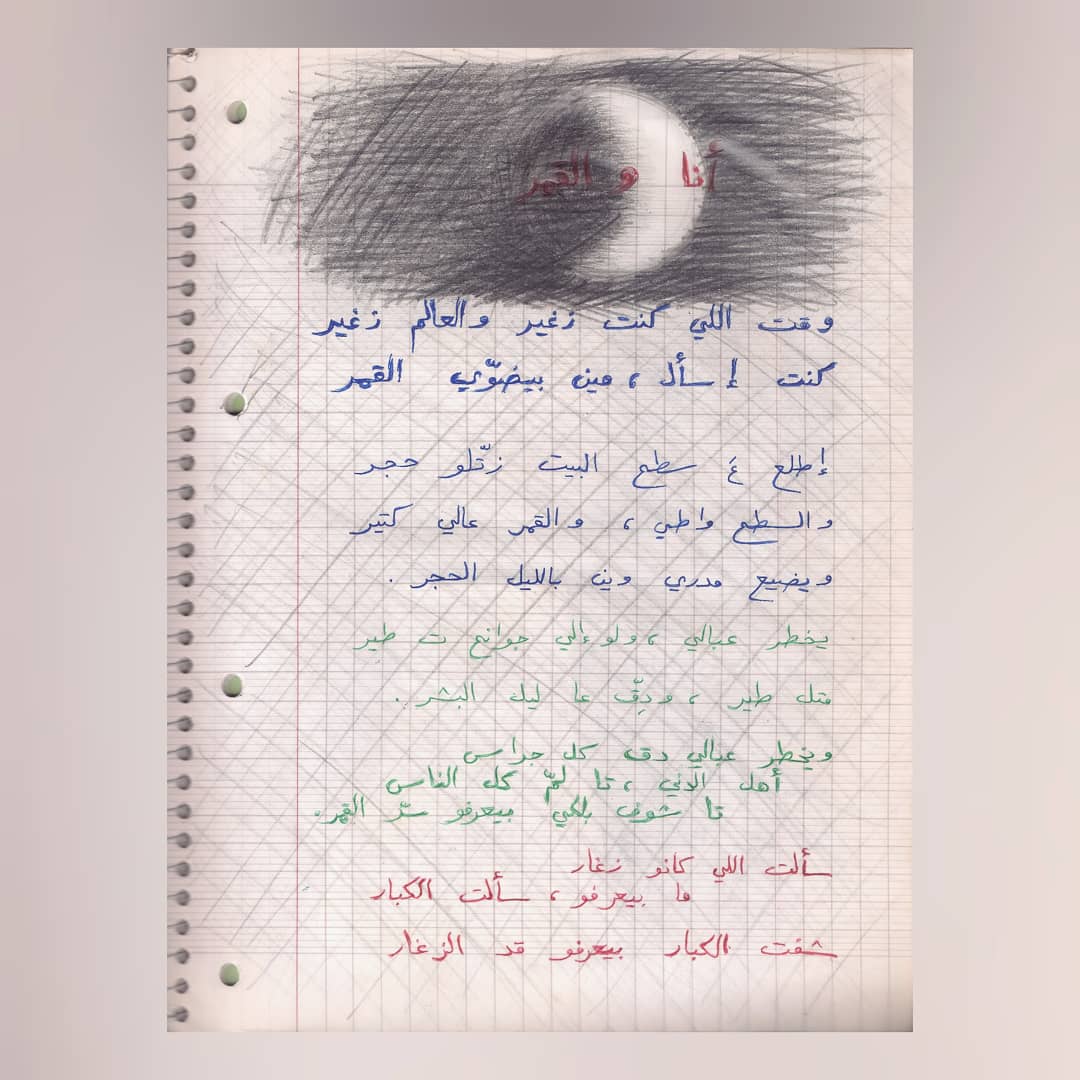 أنا و القمر
وقت اللي كنت زغير والعالم زغير
كنت إسأل ، مين بيضوّي القمر
إطلع ع سطح البيت زتّلو حجر
والسطح واطي ، والقمر عالي كتير
ويضيع مدري وين بالليل الحجر .
يخطر عبالي ، ولو إلي جوانح ت طير
متل طير ، ودِقّ عا ليل البشر .
ويخطر عبالي دق كل جراس
أهل الدني ، تا لمّ كل الناس
تا شوف بلكي بيعرفو سرّ القمر .
سألت اللي كانو زغار
ما بيعرفو ، سألت الكبار
شفت الكبار بيعرفو قد الزغار